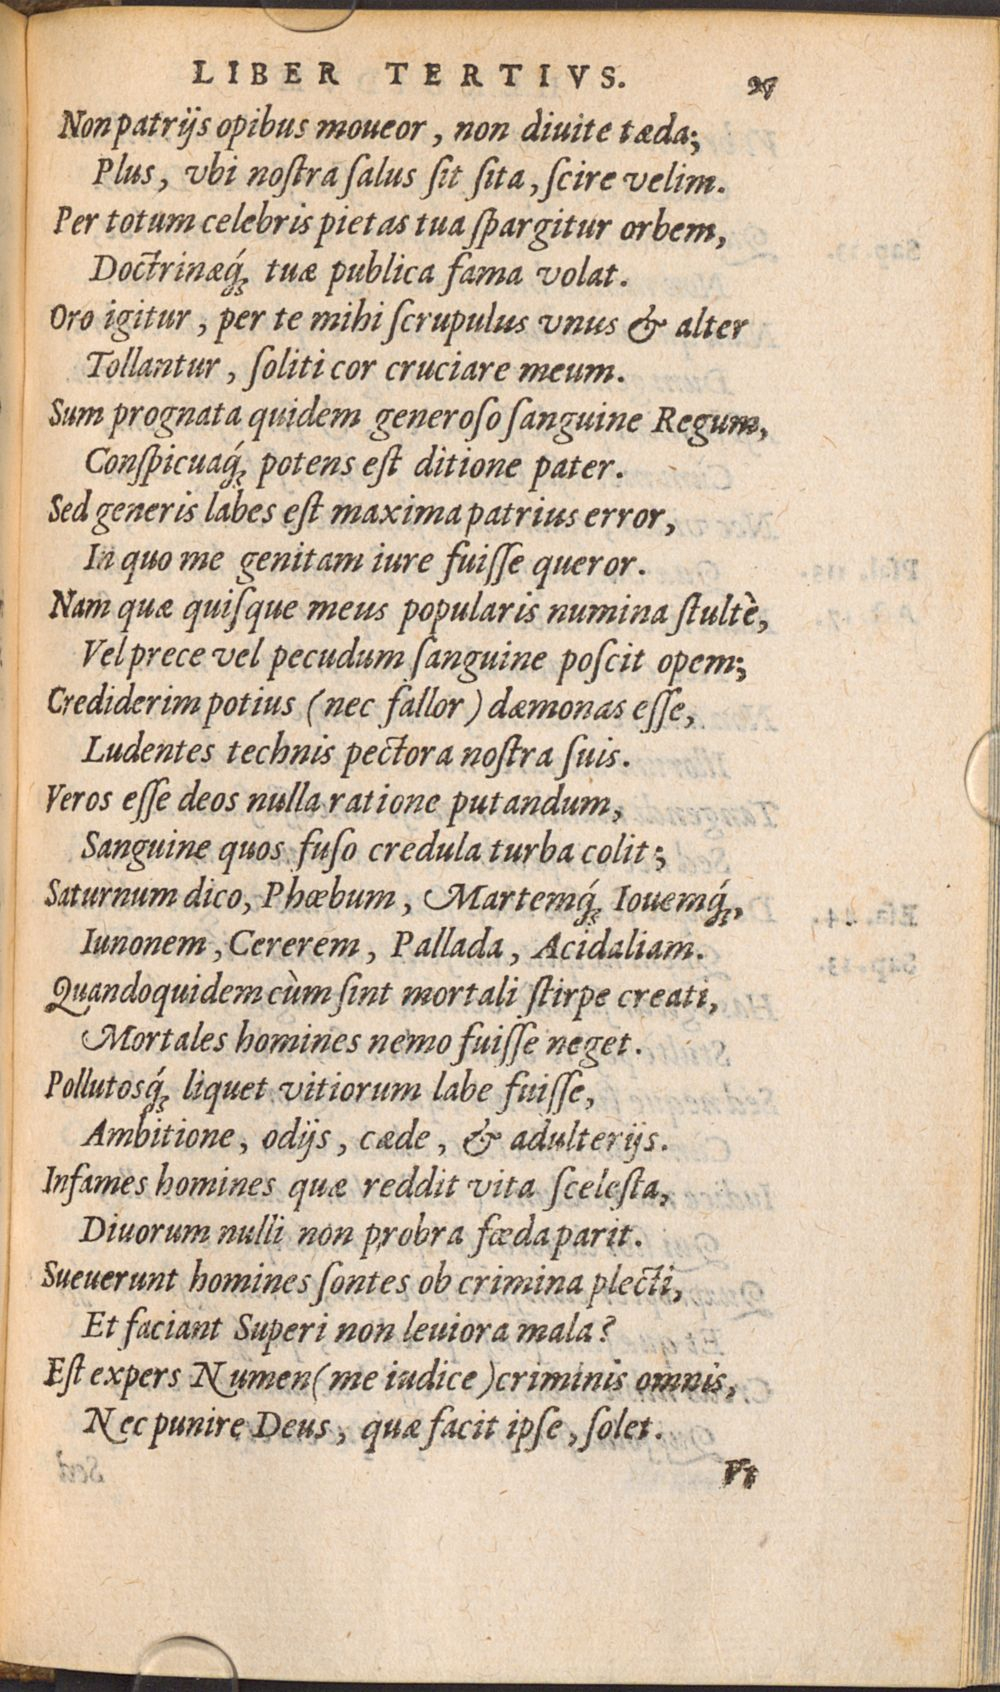 LIBER TERTIVS. 27
Non patrijs opibus moueor, non diuite tæda;
Plus, vbi noſtra ſalus ſit ſita, ſcire velim.
Per totum celebris pietas tua ſpargitur orbem,
Doctrinæq́ꝫ tuæ publica fama volat.
Oro igitur, per te mihi ſcrupulus vnus & alter
Tollantur, ſoliti cor cruciare meum.
Sum prognata quidem generoſo ſanguine Regum,
Conſpicuaq́ꝫ potens eſt ditione pater.
Sed generis labes eſt maxima patrius error,
In quo me genitam iure fuiſſe queror.
Nam quæ quiſque meus popularis numina ſtultè,
Vel prece vel pecudum ſanguine poſcit opem;
Crediderim potius (nec fallor) dæmonas eſſe,
Ludentes technis pectora noſtra ſuis.
Veros eſſe deos nulla ratione putandum,
Sanguine quos fuſo credula turba colit;
Saturnum dico, Phœbum, Martemq́ꝫ Iouemq́ꝫ,
Iunonem, Cererem, Pallada, Acidaliam.
Quandoquidem cùm ſint mortali ſtirpe creati,
Mortales homines nemo fuiſſe neget.
Pollutosq́ꝫ liquet vitiorum labe fuiſſe,
Ambitione, odijs, cæde, & adulterijs.
Infames homines quæ reddit vita ſceleſta,
Diuorum nulli non probra fœda parit.
Sueuerunt homines ſontes ob crimina plecti,
Et faciant Superi non leuiora mala?
Eſt expers Numen (me iudice) criminis omnis,
Nec punire Deus, quæ facit ipſe, ſolet.
Vt